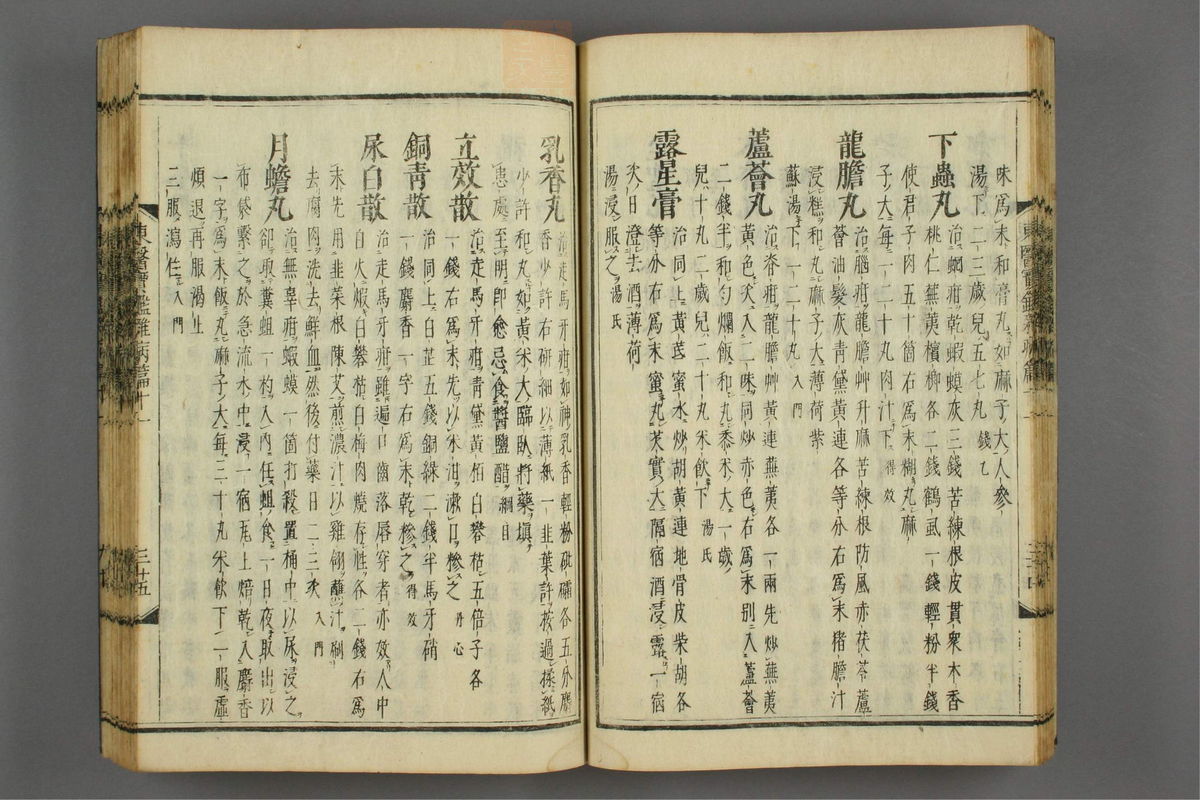 味爲末和膏丸如麻子大人參
湯下二三歲兒五七丸 錢乙
下蟲丸 治蛔疳乾蝦蟆灰三錢苦練根皮貫衆木香
桃仁蕪荑檳榔各二錢鶴虱一錢輕粉半錢
使君子肉五十箇右爲末糊丸麻
子大每一二十丸肉汁下 得效
龍膽丸 治腦疳龍膽艸升麻苦練根防風赤茯苓蘆
薈油髮灰青黛黃連各等分右爲末猪膽汁
浸糕和丸麻子大薄荷紫
蘇湯下一二十丸 入門
蘆薈丸 治脊疳龍膽艸黃連蕪荑各一兩先炒蕪荑
黃色次入二味同炒赤色右爲末別入蘆薈
二錢半和勻爛飯和丸黍米大一歲
兒十丸二歲兒二十丸米飲下 湯氏
露星膏 治同上黃芪蜜水炒胡黃連地骨皮柴胡各
等分右爲末蜜丸芡實大隔宿酒浸露一宿
次日澄去酒薄荷
湯浸服之 湯氏
乳香丸 治走馬牙疳如神乳香輕粉砒礵各五分麝
香少許右研細以薄紙一韭葉許按過揉紙
少許和丸如黃米大臨臥將藥填
患處至明卽愈忌食醬鹽醋 綱目
立效散 治走馬牙疳青黛黃栢白礬枯五倍子各
一錢右爲末先以米泔漱口糝之 丹心
銅青散 治同上白芷五錢銅綠二錢半馬牙硝
一錢麝香一字右爲末乾糝之 得效
尿白散 治走馬牙疳雖遍口齒落唇穿者亦效人中
白火煅白礬枯白梅肉燒存性各二錢右爲
末先用韭菜根陳艾煎濃汁以雞翎蘸汁刷
去腐肉洗去鮮血然後付藥日二三次 入門
月蟾丸 治無辜疳蝦蟆一箇打殺置桶中以尿浸之
卻取糞蛆一杓入內任蛆食一日夜取出以
布袋繫之於急流水中浸一宿瓦上焙乾入麝香
一字爲末飯丸麻子大每二十丸米飲下一服虛
煩退再服渴止
三服瀉住 入門
東醫寶鑑雜病篇十一
三十五